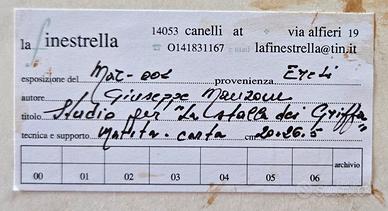 14053 canelli at ✦ via alfieri 19
la finestrella ☎ 0141831167 e mail lafinestrella@tin.it
esposizione del Mar-002 provenienza Eredi
autore Giuseppe Manzone
titolo Studio per "La stalla dei Griffa"
tecnica e supporto Matita-carta cm. 20x26.5
archivio
00 01 02 03 04 05 06